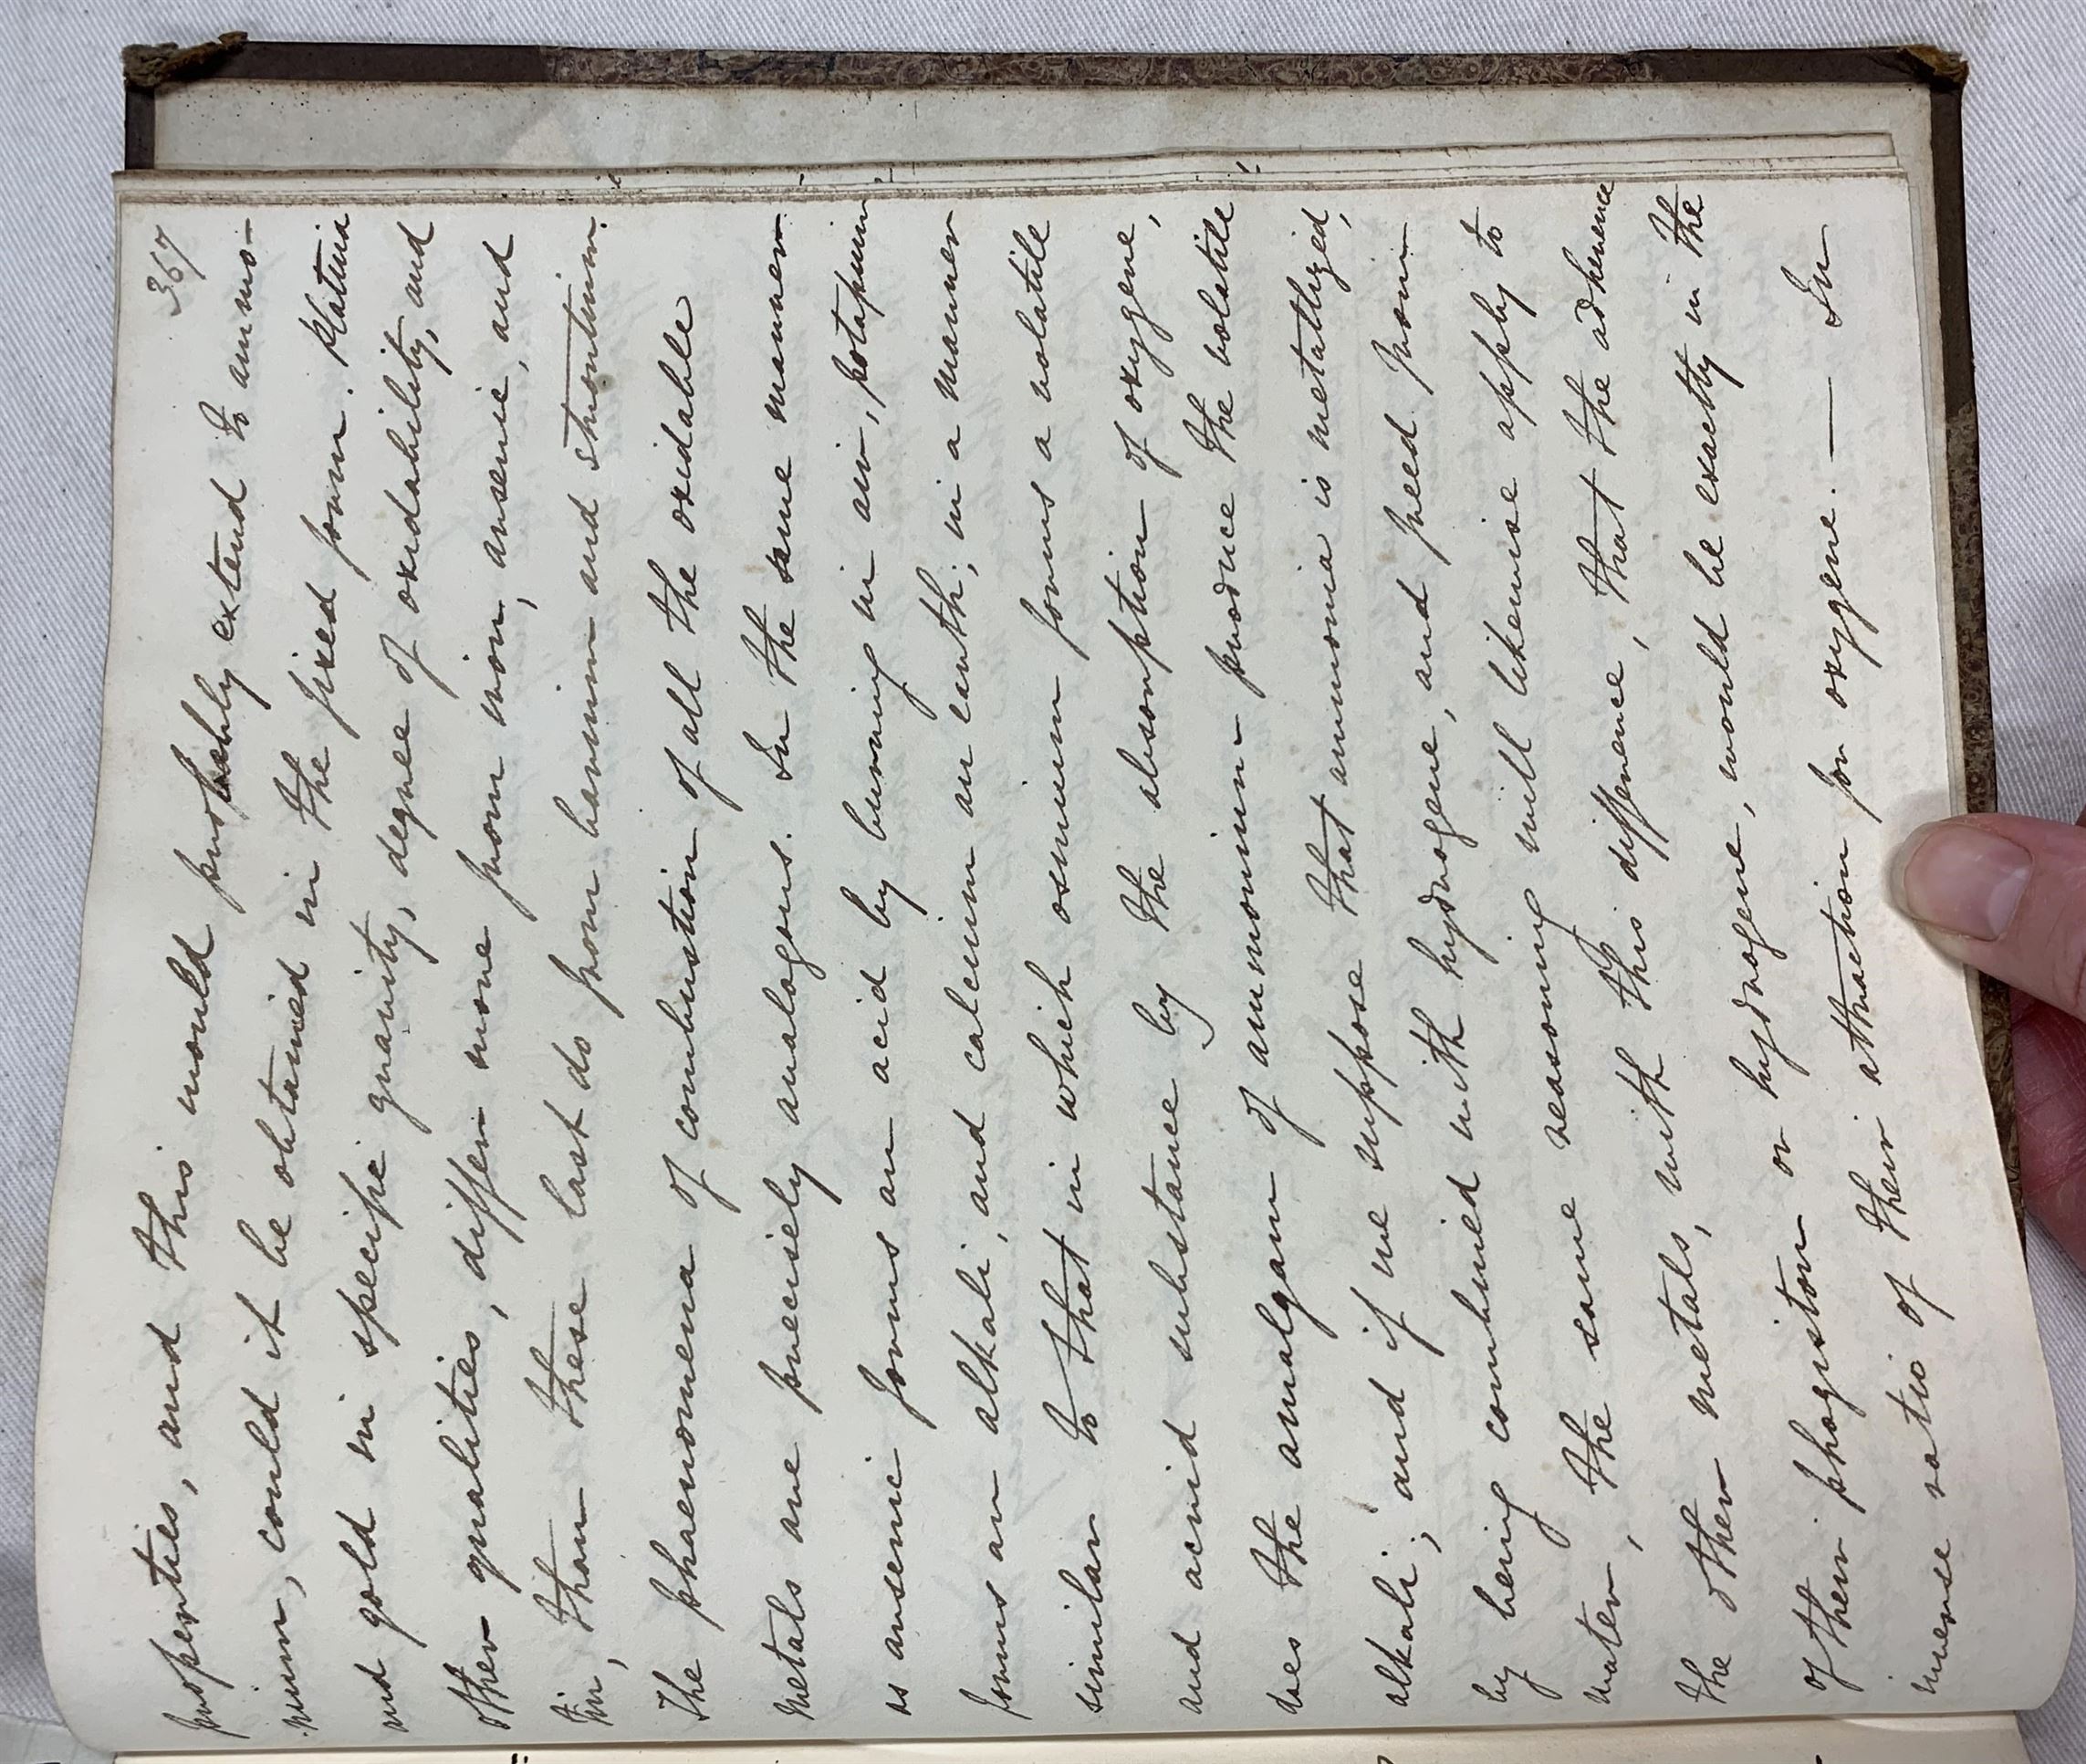 367
properties, and this would probably extend to ammo-
nium, could it be obtained in the fixed form. Platina
and gold in specific gravity, degree of oxidability, and
other qualities, differ more from iron, arsenic, and
tin, than these last do from barium and strontium.
The phaenomena of combustion of all the oxidable
metals are precisely analogous. In the same manner
as arsenic forms an acid by burning in air, potassium
forms an alkali, and calcium an earth; in a manner
similar to that in which osmium forms a volatile
and acrid substance by the absorption of oxygene,
does the amalgam of ammonium produce the volatile
alkali; and if we suppose that ammonia is metallized,
by being combined with hydrogene, and freed from
water, the same reasoning will likewise apply to
the other metals, with this difference, that the adherence
of their phogiston or hydrogene, would be exactly in the
inverse ratio of their attraction for oxygene. — In